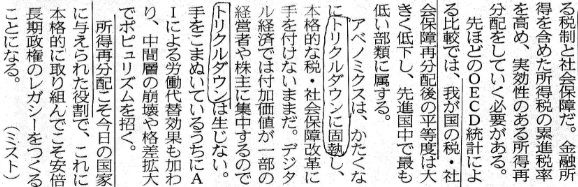 る税制と社会保障だ。金融所
得を含めた所得税の累進税率
を高め、実効性のある所得再
分配をしていく必要がある。
　先ほどのOECD統計によ
る比較では、我が国の税・社
会保障再分配後の平等度は大
きく低下し、先進国中で最も
低い部類に属する。
　アベノミクスは、かたくな
にトリクルダウンに固執し、
本格的な税・社会保障改革に
手を付けないままだ。デジタ
ル経済では付加価値が一部の
経営者や株主に集中するので
トリクルダウンは生じない。
手をこまぬいているうちにA
Iによる労働代替効果も加わ
り、中間層の崩壊や格差拡大
でポピュリズムを招く。
　所得再分配こそ今日の国家
に与えられた役割で、これに
本格的に取り組んでこそ安倍
長期政権のレガシーをつくる
ことになる。　　（ミスト）